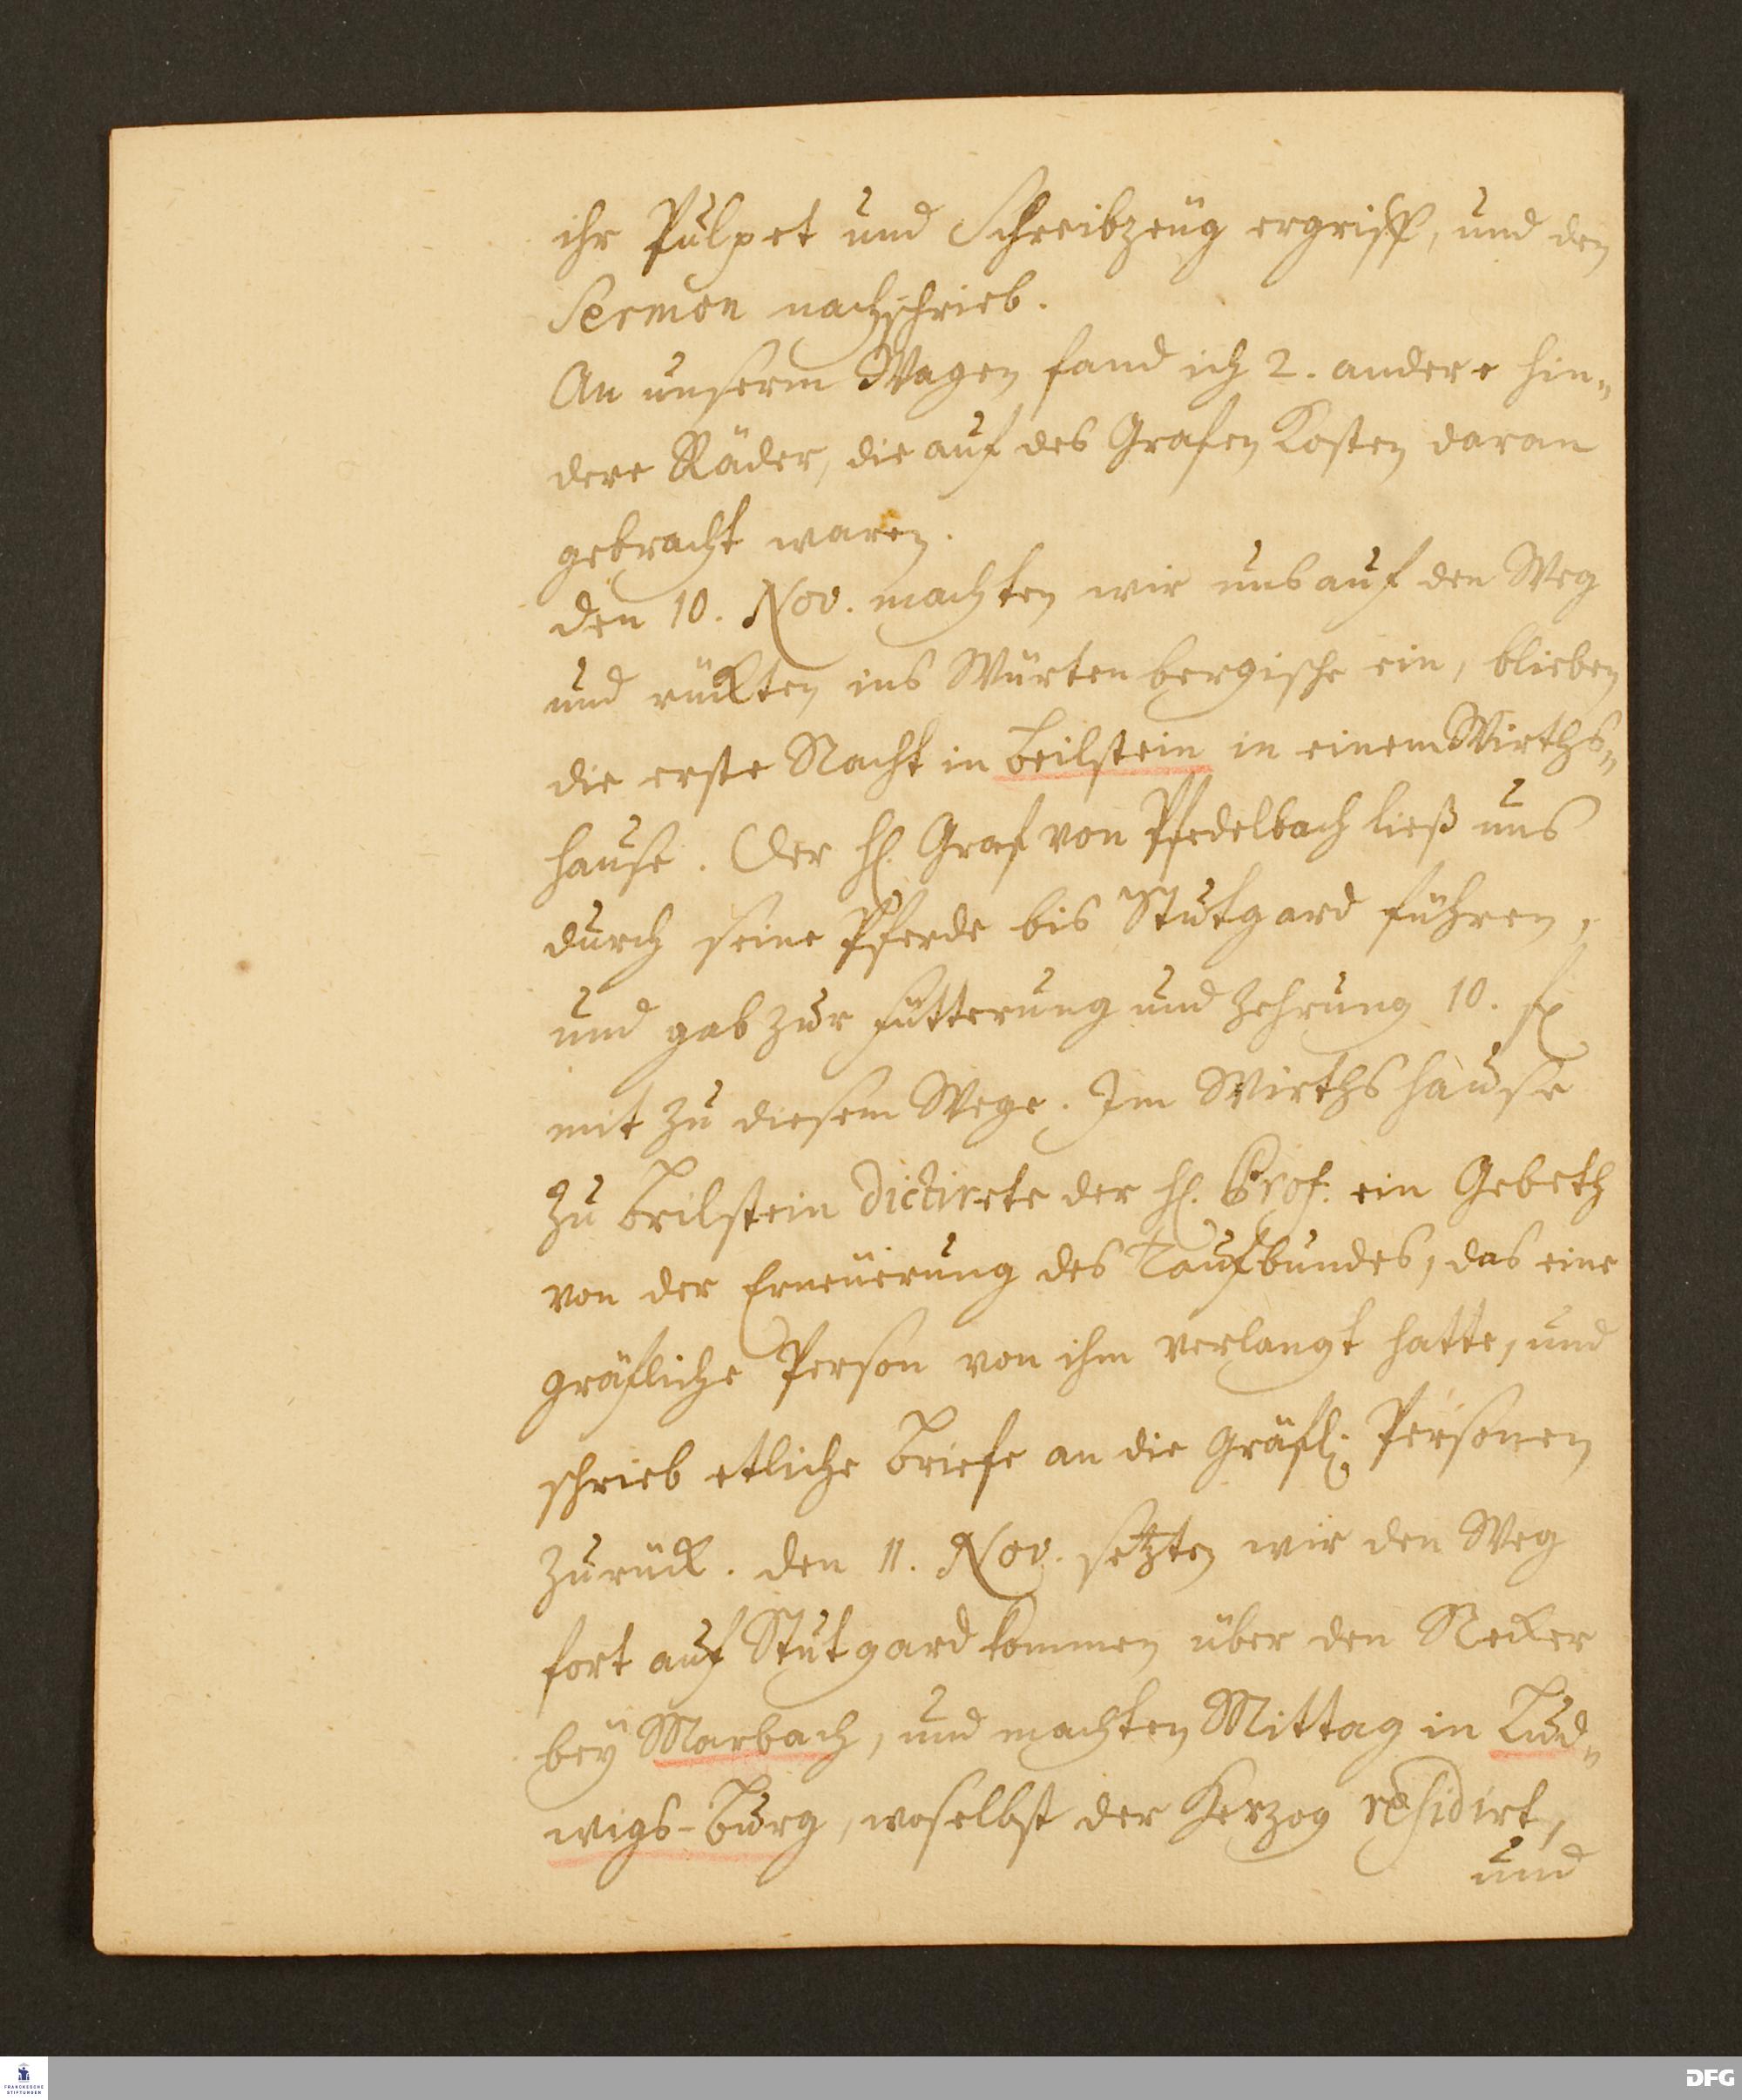 ihr Pulpet und Schreibzeug ergriff, und den
Sermon nachschrieb.
An unserm Wagen fand ich 2. andere hin-
dere Räder, die auf des Grafen Kosten daran
gebracht waren.
den 10. Nov. machten wir uns auf den Weg
und rückten ins Würtenbergische ein, blieben
die erste Nacht in Beilstein in einem Wirths-
hause. Der H. Graf von Pfedelbach ließ uns
durch seine Pferde bis Stutgard führen,
und gab zur Fütterung und Zehrung 10. fl
mit zu diesem Wege. Im Wirthshause
zu Beilstein dictirete der H. Prof. ein Gebeth
von der Erneuerung des Taufbundes, das eine
gräfliche Person von ihm verlangt hatte, und
schrieb etliche Briefe an die Gräfl. Personen
zurück. den 11. Nov. setzten wir den Weg
fort auf Stutgard kommen über den Necker
bey Marbach, und machten Mittag in Lud-
wigs-Burg, woselbst der Herzog residirt,
und
FRANCKESCHE
STIFTUNGEN
DFG